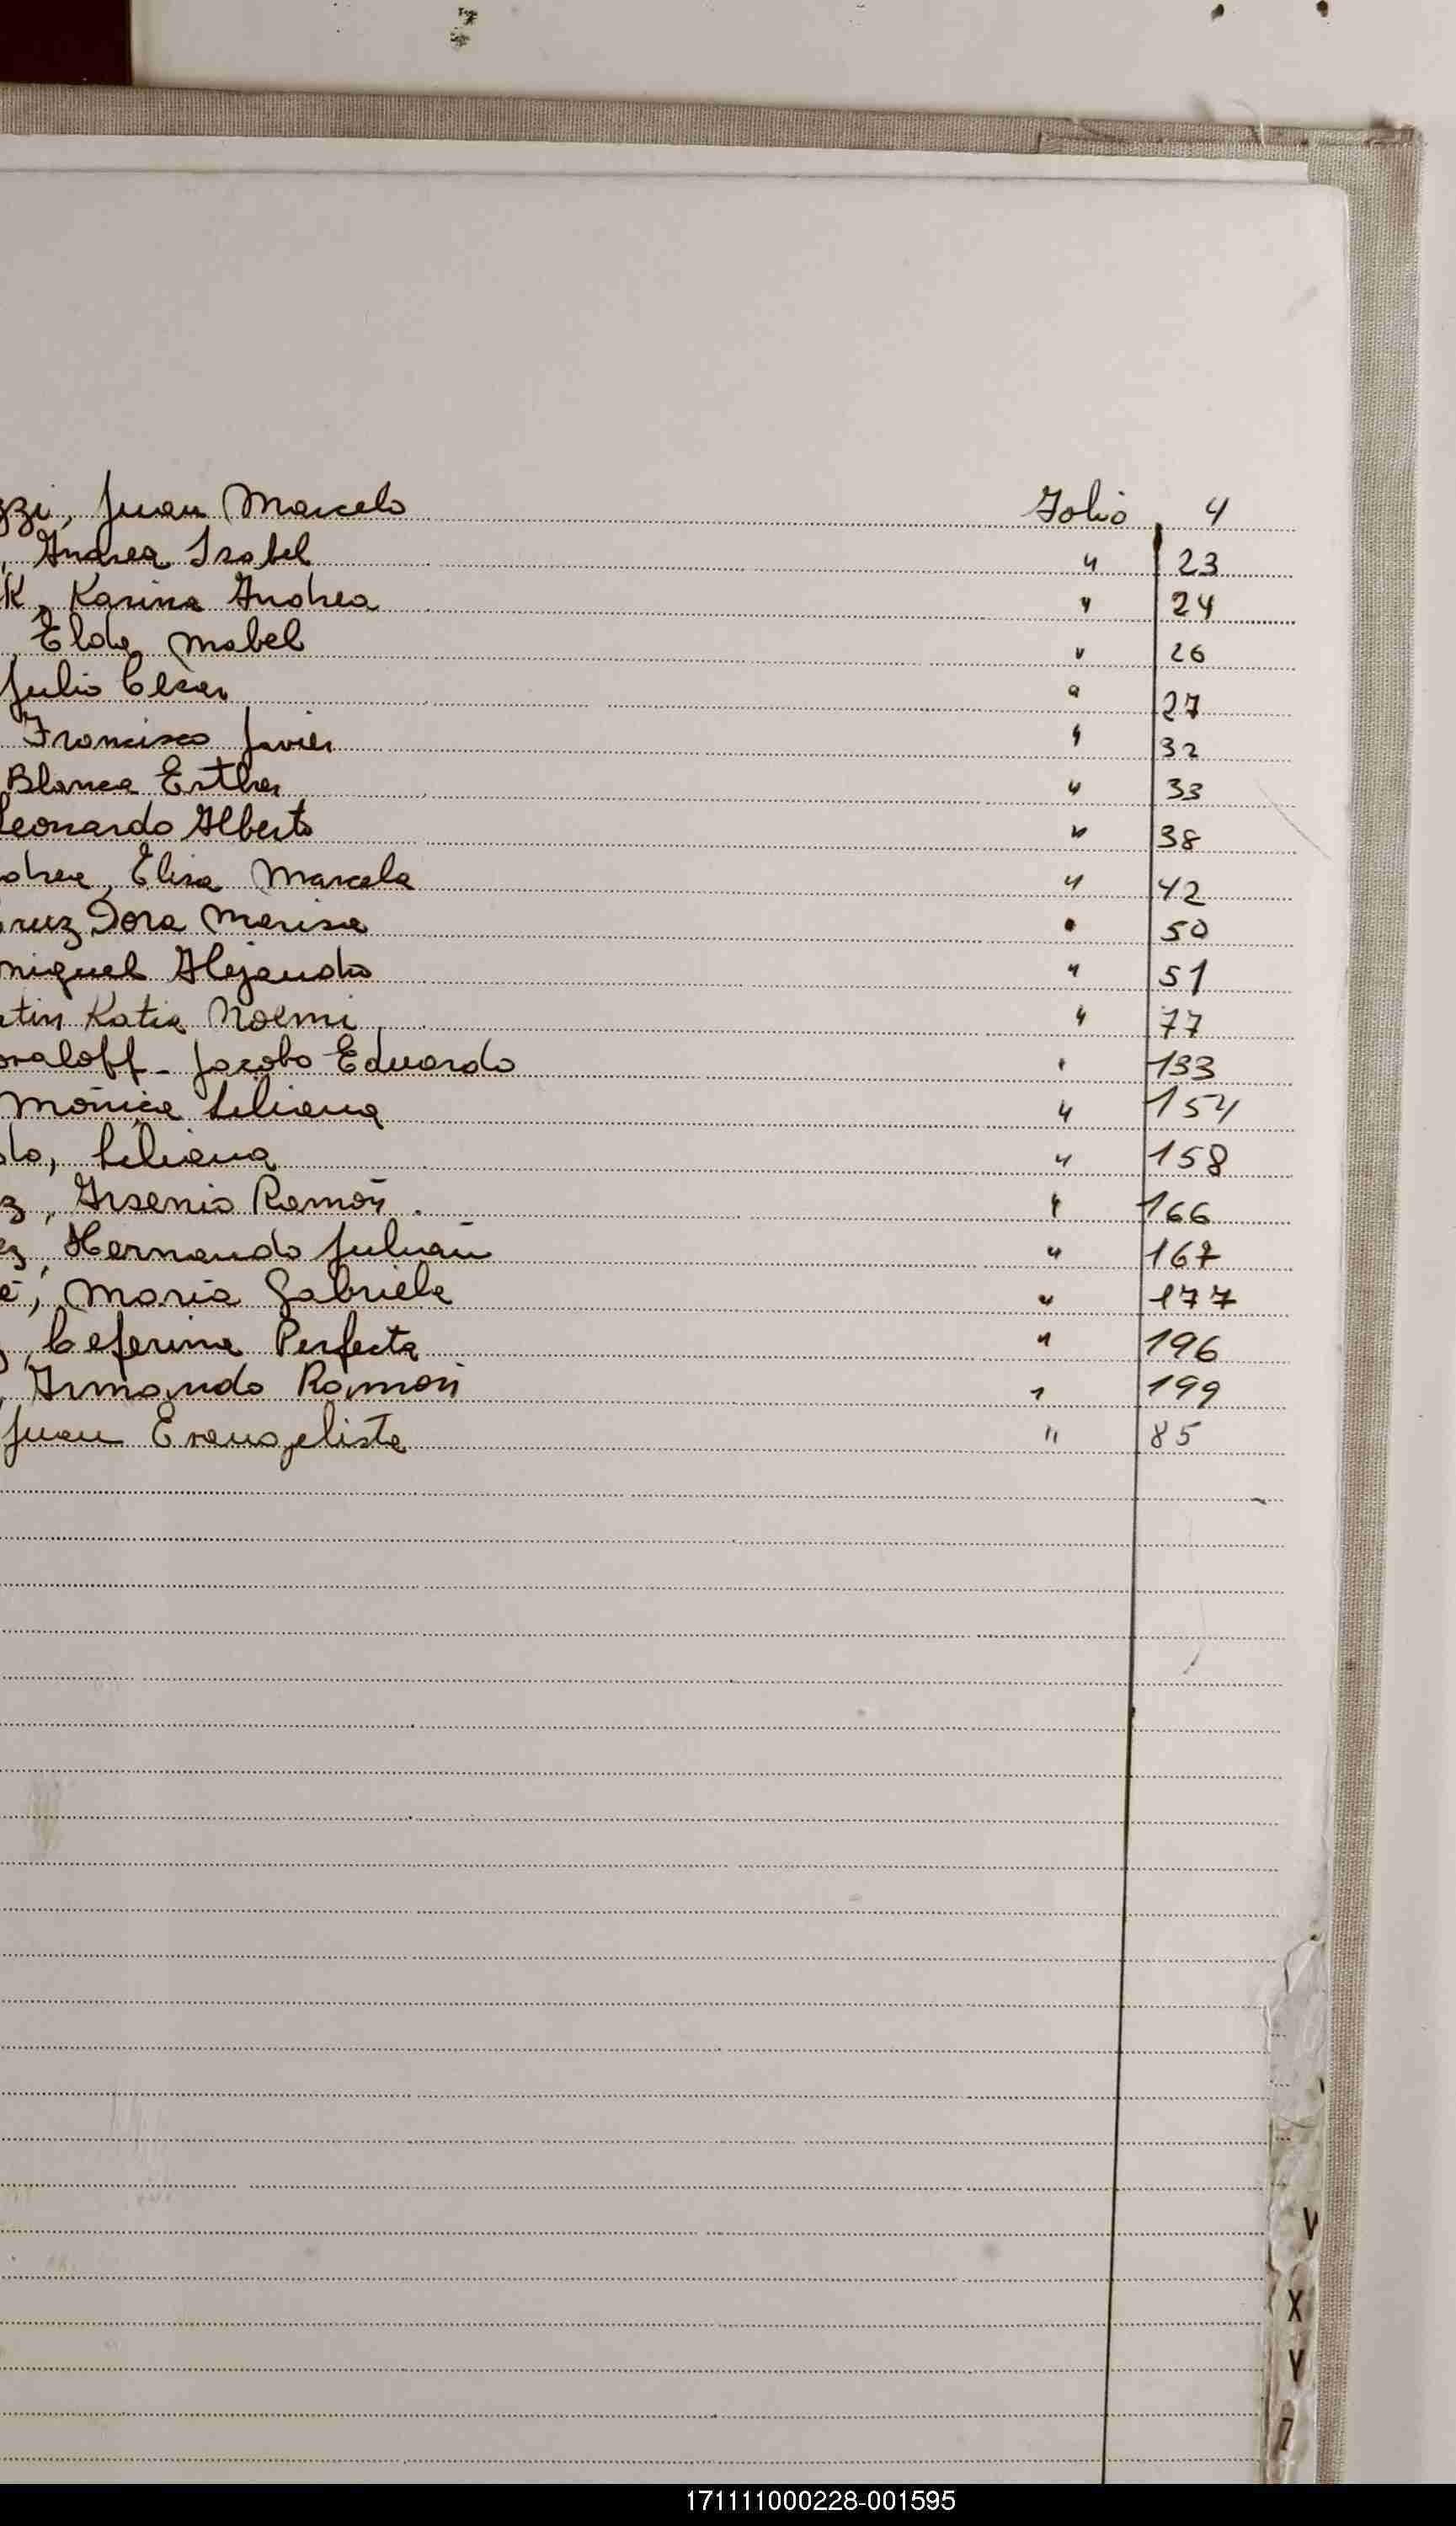 zzi, Juan Marcelo Folio 4
, Andrea Isabel " 23
K, Karina Andrea " 24
, Elda Mabel " 26
Julio Cesar " 27
Francisco Javier " 32
Blanca Esther " 33
Leonardo Alberto " 38
Elisa Marcela " 42
Cruz Dora Marisa " 50
Miguel Alejandro " 51
tin Katia Noemi " 77
oraloff - Jacobo Eduardo " 133
Mónica Liliana " 154
do, Liliana " 158
z, Arsenio Ramón . " 166
ez, Hernando Julián " 167
é, María Gabriela " 177
, Ceferina Perfecta " 196
, Armando Ramón " 199
Juan Evangelista " 85
V
X
Y
Z
171111000228-001595